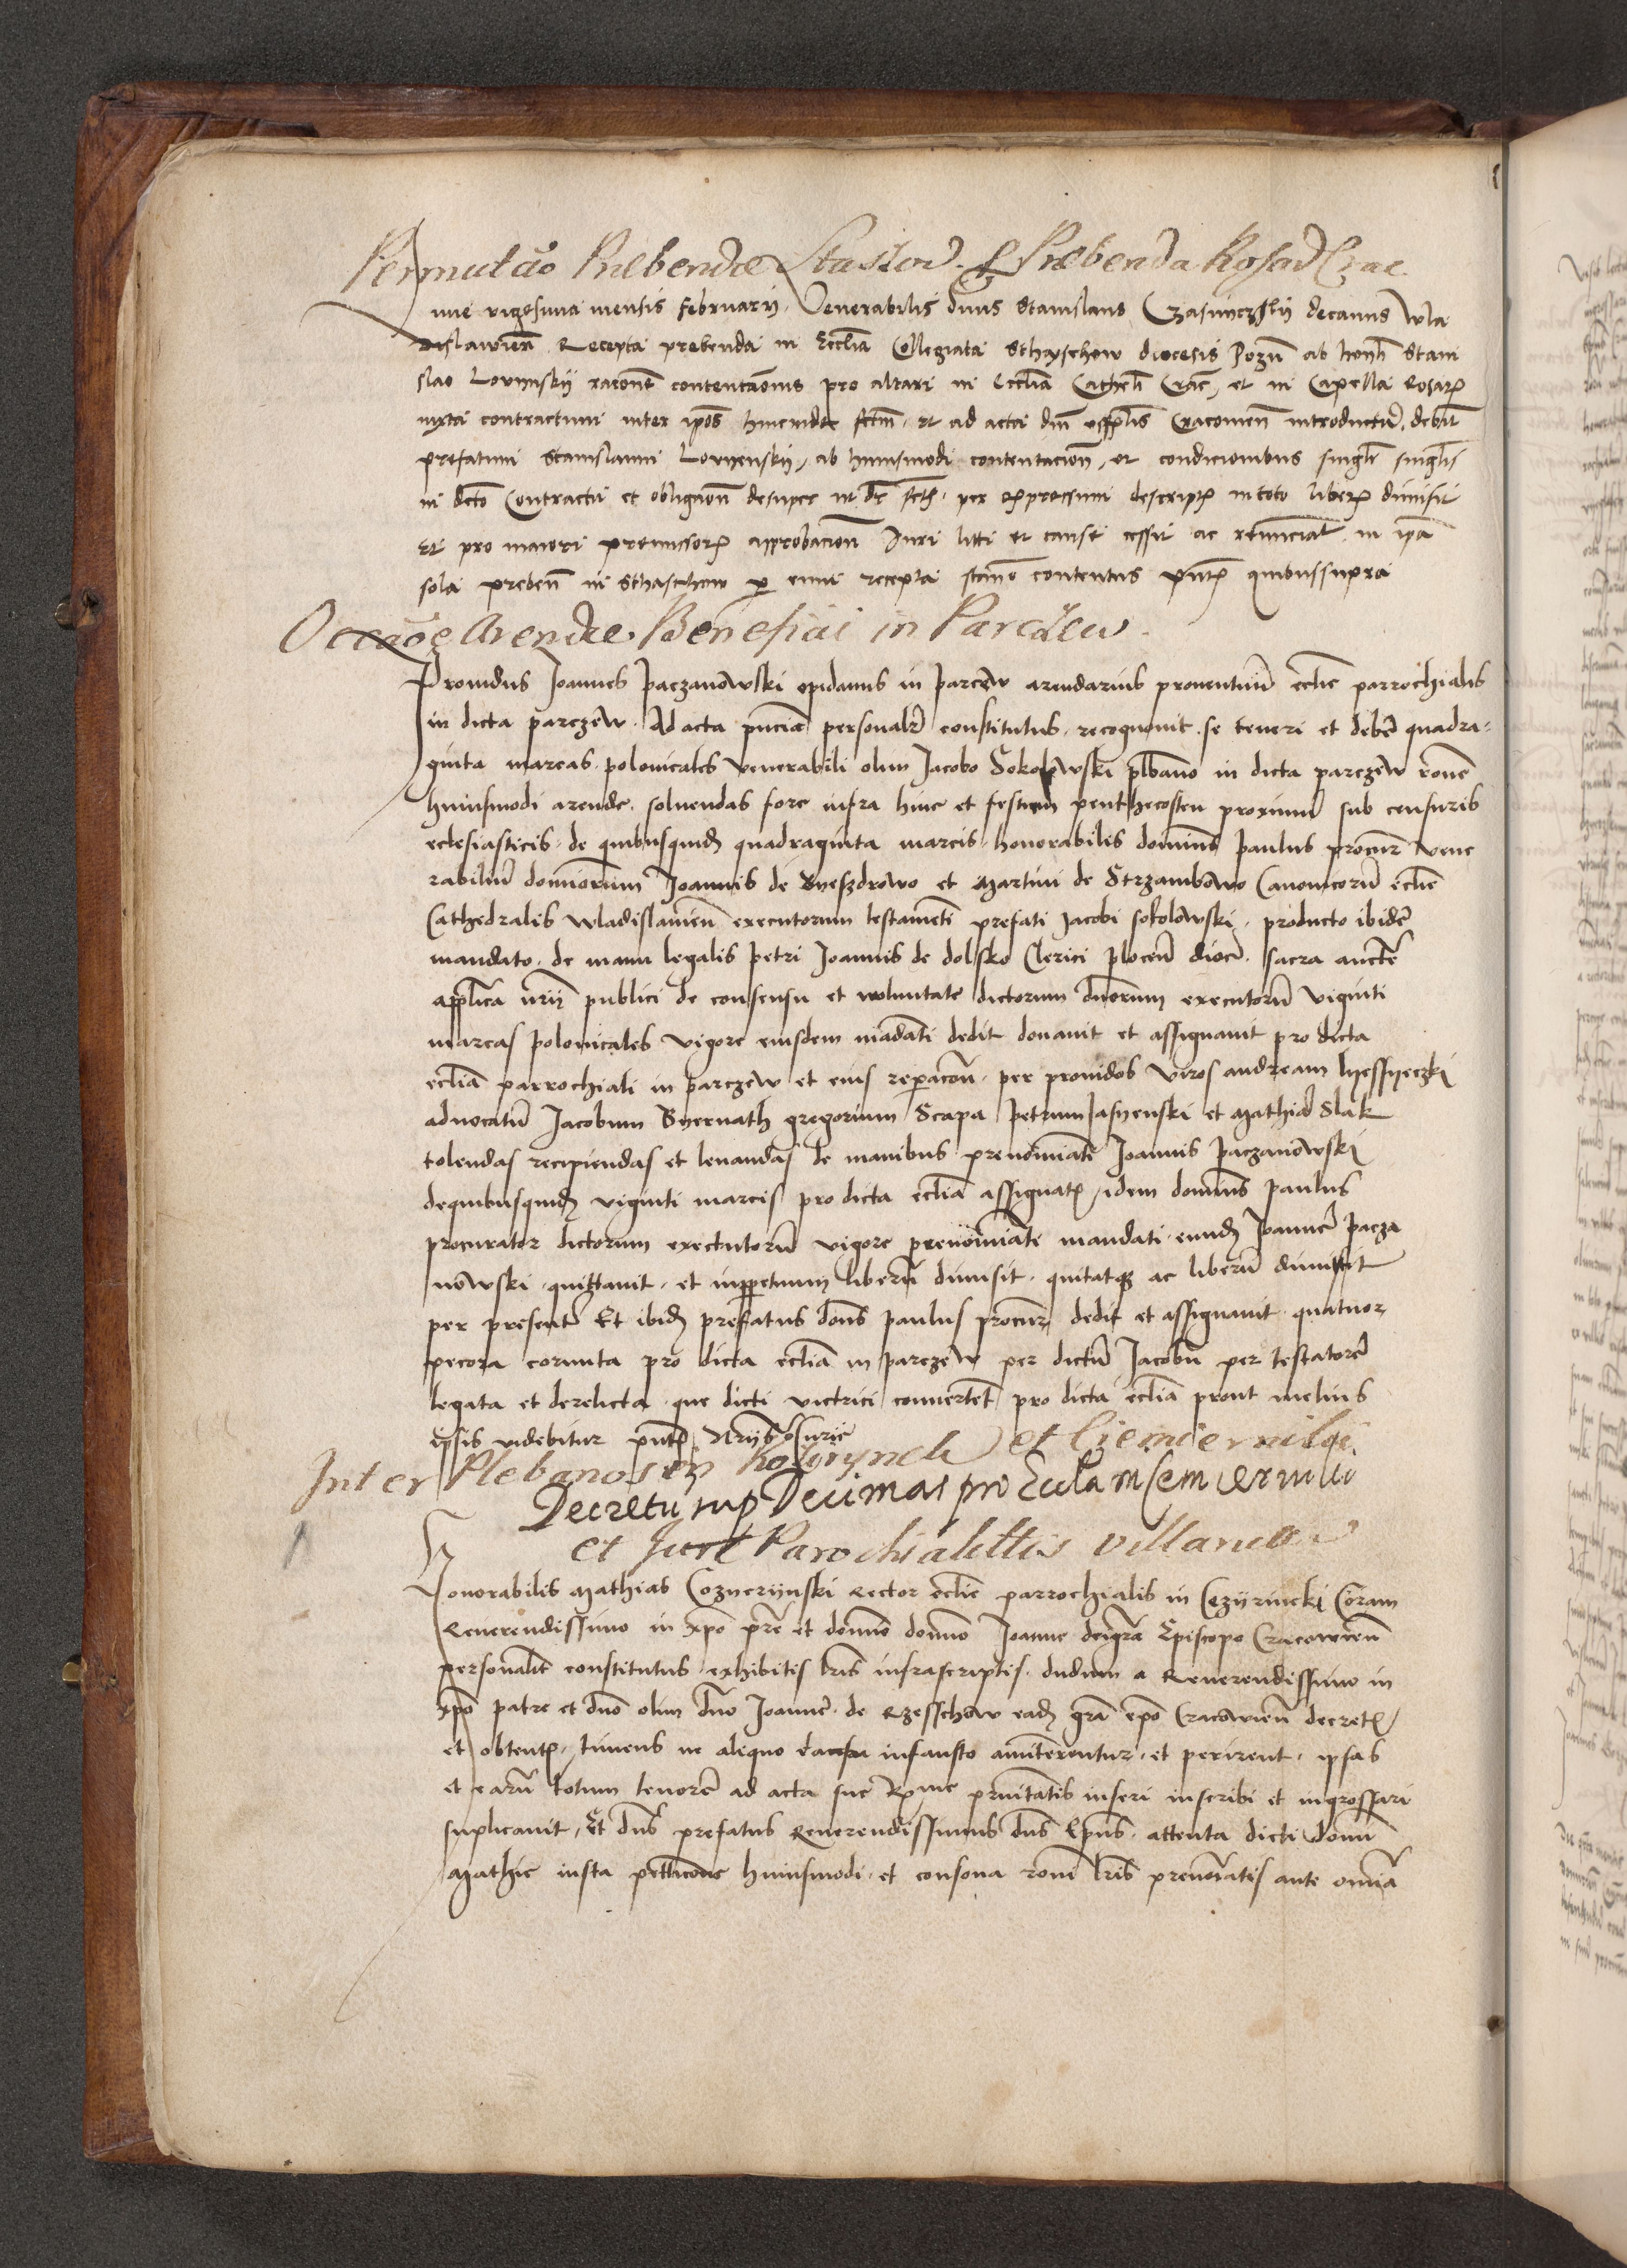 Permutao Prebendæ Stassov. & Præbenda Rosar Crac
nue vigesima mensis februarij. Venerabilis dnus Stanislaus decanus Wla
dislavien Recepta prebenda in Ecclia Collegiata Sthaschow diocesis Pozn ab honli Stani
slao Lovynskij racone contentacionis pro altari in Ecclia Cathedli Crac, et in Capella Rosarz
iuxta contractum inter ipos hincinde fctm. et ad acta dni Cracovien introductu, debit
prefatum Stanislaum Lovyenskij, ab huiusmodi contentacion, et condicionibus singlis singlis
in dcto Contractu et obligaon desuper per expressum descriptz in toto liberz dimisit
Et pro maiori premissorz approbacion Juri liti et cause cessit ac renunciat in ipa
sola preben in Sthaschow p eum recepta contentus pntz quibussupra
Occaõe Arendæ Beneficii in Parczew
Prouidus Joannes Paczanowski opidanus in Parczew arendarius prouentuu eclie parrochialis
in dicta parczew. Ad acta pncia personalr constitutus, recognouit se teneri et debe quadra-
ginta marcas polonicales Venerabili olim Jacobo Sokolowski plbano in dicta parczew rone
huiusmodi arende. soluendas fore infra hinc et festum penthecosten proximu sub censuris
eclesiasticis. de quibusquid quadraginta marcis honorabilis dominus Paulus procur vene
rabiliu dominorum Joannis de Gneszdrowo et Martini de Strzambowo Canonicoru eclie
Cathedralis Wladislauien executorum testameti prefati Jacobi Sokolowski. producto ibide
mandato. de manu legalis Petri Joannis de dolsko Clerici plocen dioce. sacra aucte
applica nrij publici de consensu et woluntate dictorum dnorum executoru viginti
marcas polonicales vigore eiusdem madati dedit donauit et assignauit pro dicta
eclia parrochiali in parczew et eius reparacon. per prouidos viros andream
aduocatu Jacobum Byernath gregorium Scapa petrum Jasyenski et Mathia Slak
tolendas recipiendas et leuandas de manibus prenominati Joannis Paczanowski
dequibusquid viginti marcis pro dicta eclia assignatz, idem dominus Paulus
procurator dictorum exectutoru vigore prenominati mandati eund Joanne Pacza
nowski. quittauit. et inperpetuum liberu dimisit. quitatqz ac liberu dimittit
per presente Et ibid prefatus dons Paulus procur dedit et assignauit quatuor
pecora cornuta pro dicta eclia in parczew per dictu Jacobu per testatore
legata et derelicta. que dicti victrici conuertet pro dicta eclia prout melius
ipsis videbitur pntz
Inter Plebanos in et Ciemierniki
Decretu sup Decimas pro Eccla in Sem
et Jure Parochialittis
Honorabilis Mathias Coznerynski Rector eclie parrochialis in Coram
Reuerendissimo in xpo pre et domno domno Joanne deigra Episcopo Cracowien
personalit constitutus exhibitis lris infrascriptis. dudum a Reuerendissimo in
xpo patre et dno olim dno Joanne. de Rzesschow ead gra epo Cracowien decretz
et obtentz, timens ne aliquo casu infausto amitterentur. et perirent. ipsas
et earu totum tenore ad acta sue Rme pruitatis inseri inscribi et ingrossari
suplicauit, Et dns prefatus Reuerendissimus dns Epus. attenta dicti domi
Mathie iusta peticone huiusmodi. et consona roni lris prenoiatis ante omnia